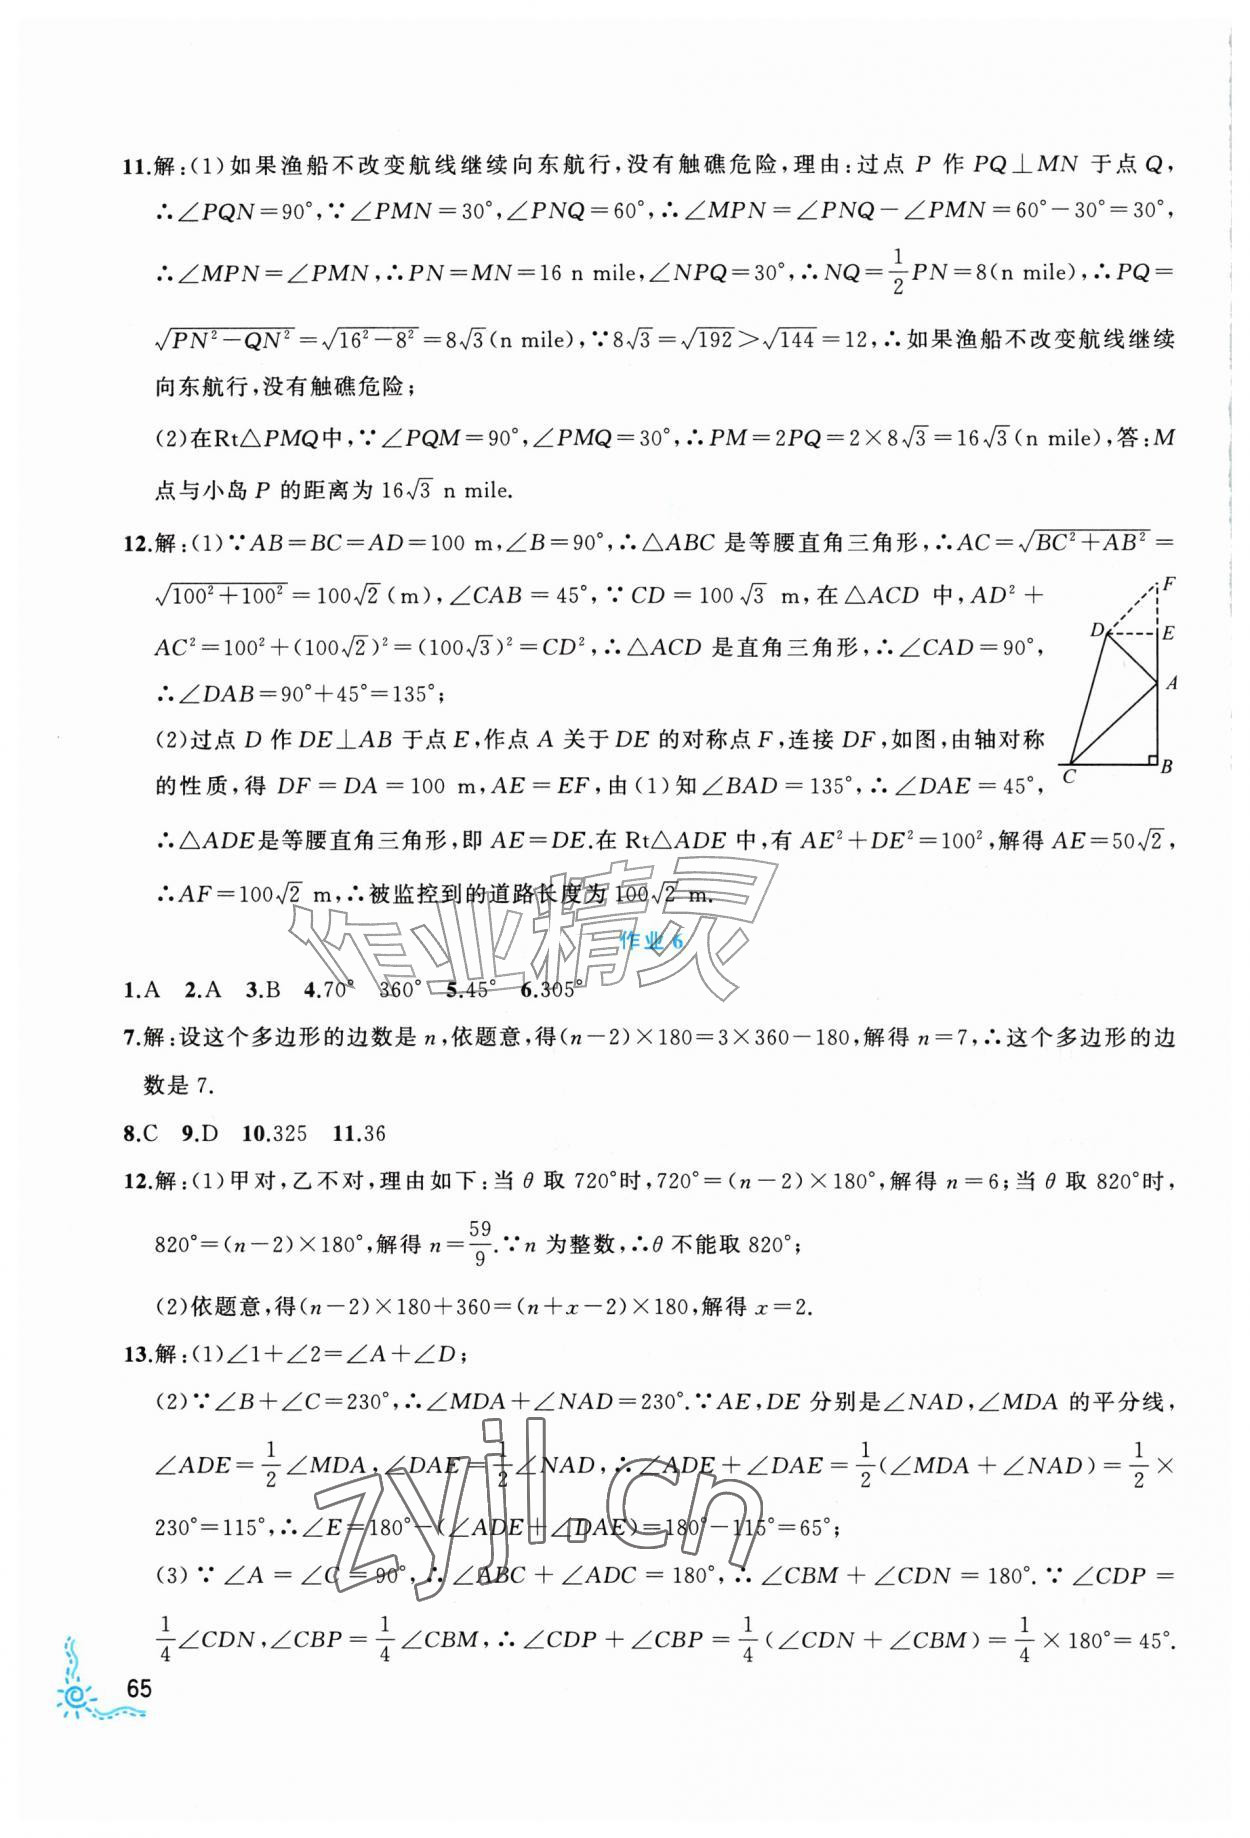 11.解:(1)如果渔船不改变航线继续向东航行,没有触礁危险,理由:过点 P 作 PQ⊥MN 于点 Q,
∴∠PQN=90°,∵∠PMN=30°,∠PNQ=60°,∴∠MPN=∠PNQ-∠PMN=60°-30°=30°,
∴∠MPN=∠PMN,∴PN=MN=16 n mile,∠NPQ=30°,∴NQ=1/2PN=8(n mile),∴PQ=
√(PN²-QN²)=√(16²-8²)=8√3(n mile),∵8√3=√192>√144=12,∴如果渔船不改变航线继续
向东航行,没有触礁危险;
(2)在Rt△PMQ中,∵∠PQM=90°,∠PMQ=30°,∴PM=2PQ=2×8√3=16√3(n mile),答:M
点与小岛 P 的距离为 16√3 n mile.
12.解:(1)∵AB=BC=AD=100 m,∠B=90°,∴△ABC 是等腰直角三角形,∴AC=√(BC²+AB²)=
√(100²+100²)=100√2(m),∠CAB=45°,∵CD=100√3 m,在△ACD 中,AD²+
AC²=100²+(100√2)²=(100√3)²=CD²,∴△ACD 是直角三角形,∴∠CAD=90°,
∴∠DAB=90°+45°=135°;
(2)过点 D 作 DE⊥AB 于点 E,作点 A 关于 DE 的对称点 F,连接 DF,如图,由轴对称
的性质,得 DF=DA=100 m,AE=EF,由(1)知∠BAD=135°,∴∠DAE=45°,
∴△ADE是等腰直角三角形,即 AE=DE.在 Rt△ADE 中,有 AE²+DE²=100²,解得 AE=50√2,
∴AF=100√2 m,∴被监控到的道路长度为 100√2 m.
F
D
E
A
C
B
作业 6
1.A 2.A 3.B 4.70° 360° 5.45° 6.305°
7.解:设这个多边形的边数是 n,依题意,得(n-2)×180=3×360-180,解得 n=7,∴这个多边形的边
数是 7.
8.C 9.D 10.325 11.36
12.解:(1)甲对,乙不对,理由如下:当 θ 取 720°时,720°=(n-2)×180°,解得 n=6;当 θ 取 820°时,
820°=(n-2)×180°,解得 n=59/9.∵n 为整数,∴θ 不能取 820°;
(2)依题意,得(n-2)×180+360=(n+x-2)×180,解得 x=2.
13.解:(1)∠1+∠2=∠A+∠D;
(2)∵∠B+∠C=230°,∴∠MDA+∠NAD=230°.∵AE,DE 分别是∠NAD,∠MDA 的平分线,
∠ADE=1/2∠MDA,∠DAE=1/2∠NAD,∴∠ADE+∠DAE=1/2(∠MDA+∠NAD)=1/2×
230°=115°,∴∠E=180°-(∠ADE+∠DAE)=180°-115°=65°;
(3)∵∠A=∠C=90°,∴∠ABC+∠ADC=180°,∴∠CBM+∠CDN=180°.∵∠CDP=
1/4∠CDN,∠CBP=1/4∠CBM,∴∠CDP+∠CBP=1/4(∠CDN+∠CBM)=1/4×180°=45°.
65
作业精灵
zyjl.cn